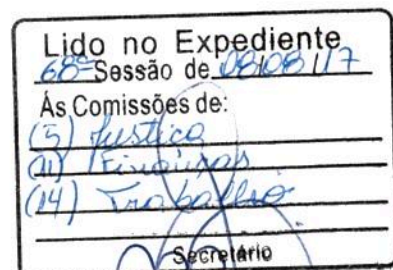 Lido no Expediente
68ª Sessão de 08/08/17
Ás Comissões de:
(5) Justiça
(11) Finanças
(14) Trabalho
Secretário